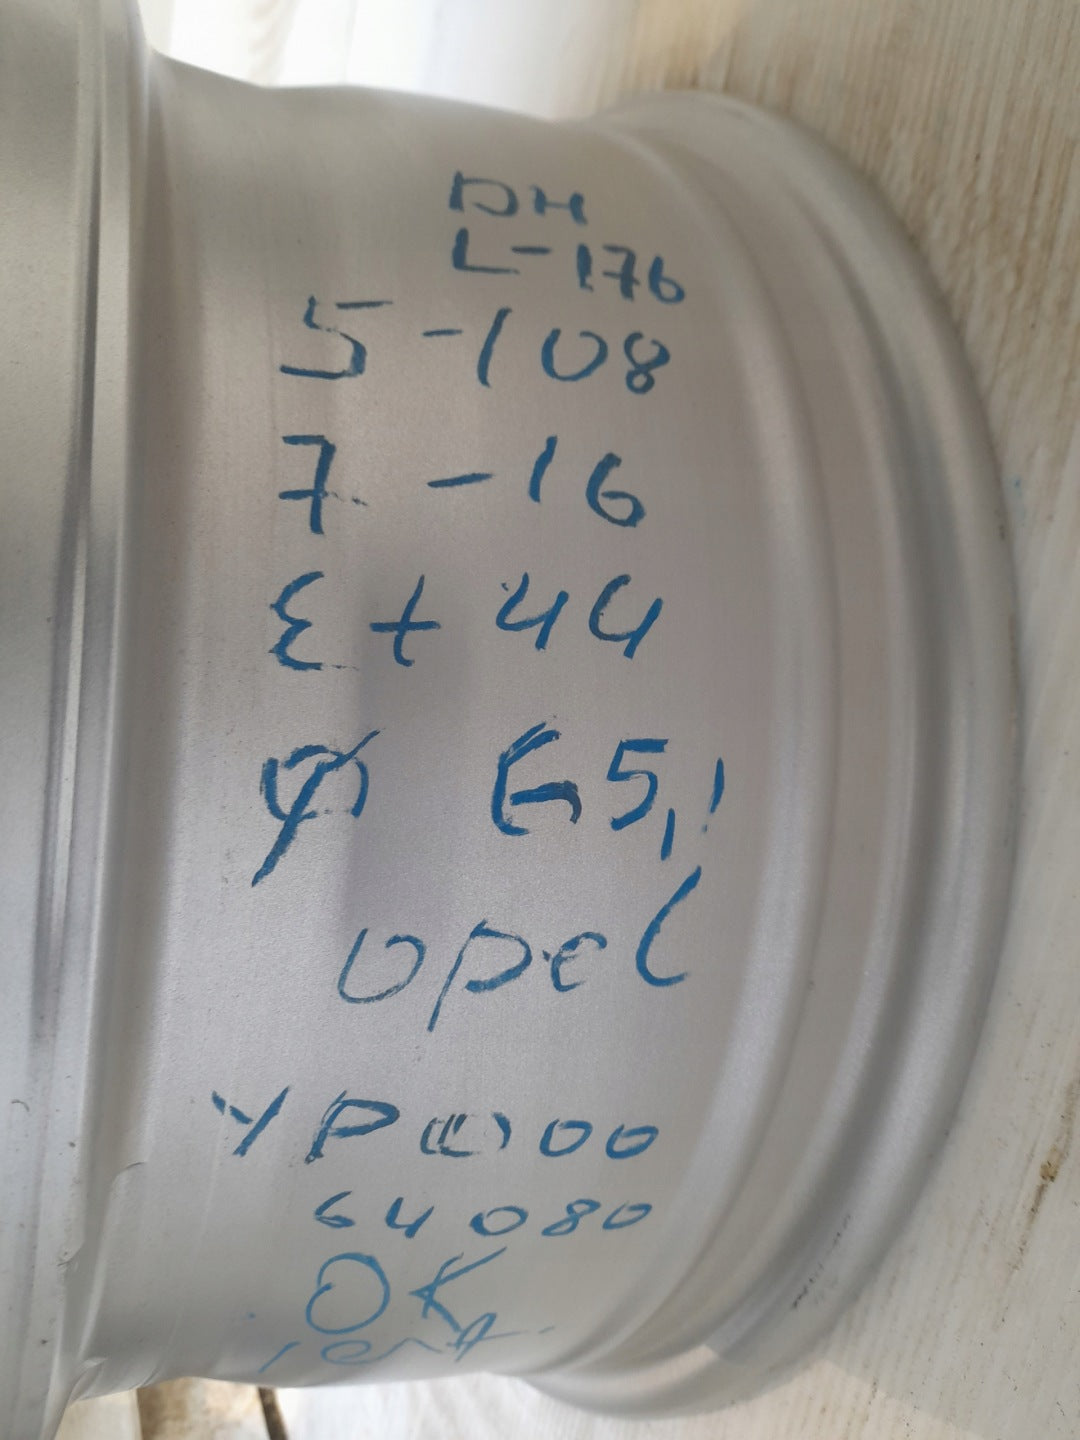 DH
L-176
5-108
7-16
Et 44
Ø 65,1
opel
64080
OK